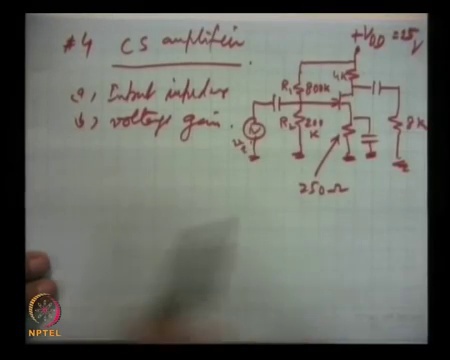 #4 CS amplifier
a, Input impedance
b, voltage gain.
+VDD = 25V
4K
R1 800K
R2 200K
8K
250Ω
NPTEL